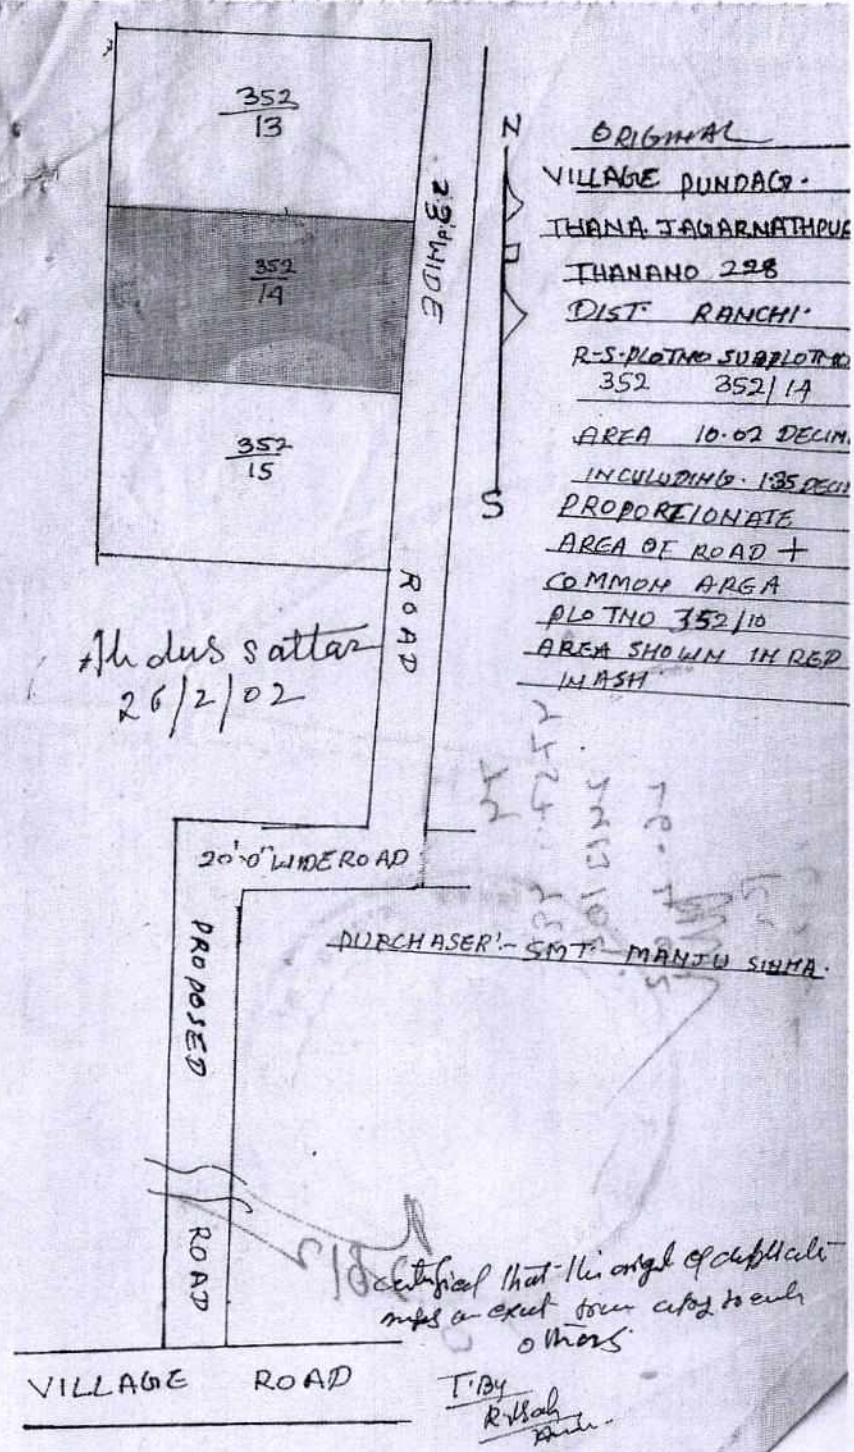 352
13
352
14
352
15
WIDE
ROAD
N
S
ORIGINAL
VILLAGE PUNDAG.
THANA. JAGARNATHPUR
THANANO 228
DIST. RANCHI.
R-S-PLOTNO SUBPLOTNO
352 352/14
AREA 10.02 DECIM
INCULUDING. 1.35 DECIM
PROPORTIONATE
AREA OF ROAD +
COMMON AREA
PLOTNO 352/10
AREA SHOWN IN RED
WASH
Abdus sattar
26/2/02
20'0" WIDE ROAD
PURCHASER:- SMT. MANJU SINHA.
PROPOSED
ROAD
certified that the
others.
VILLAGE ROAD
T.By